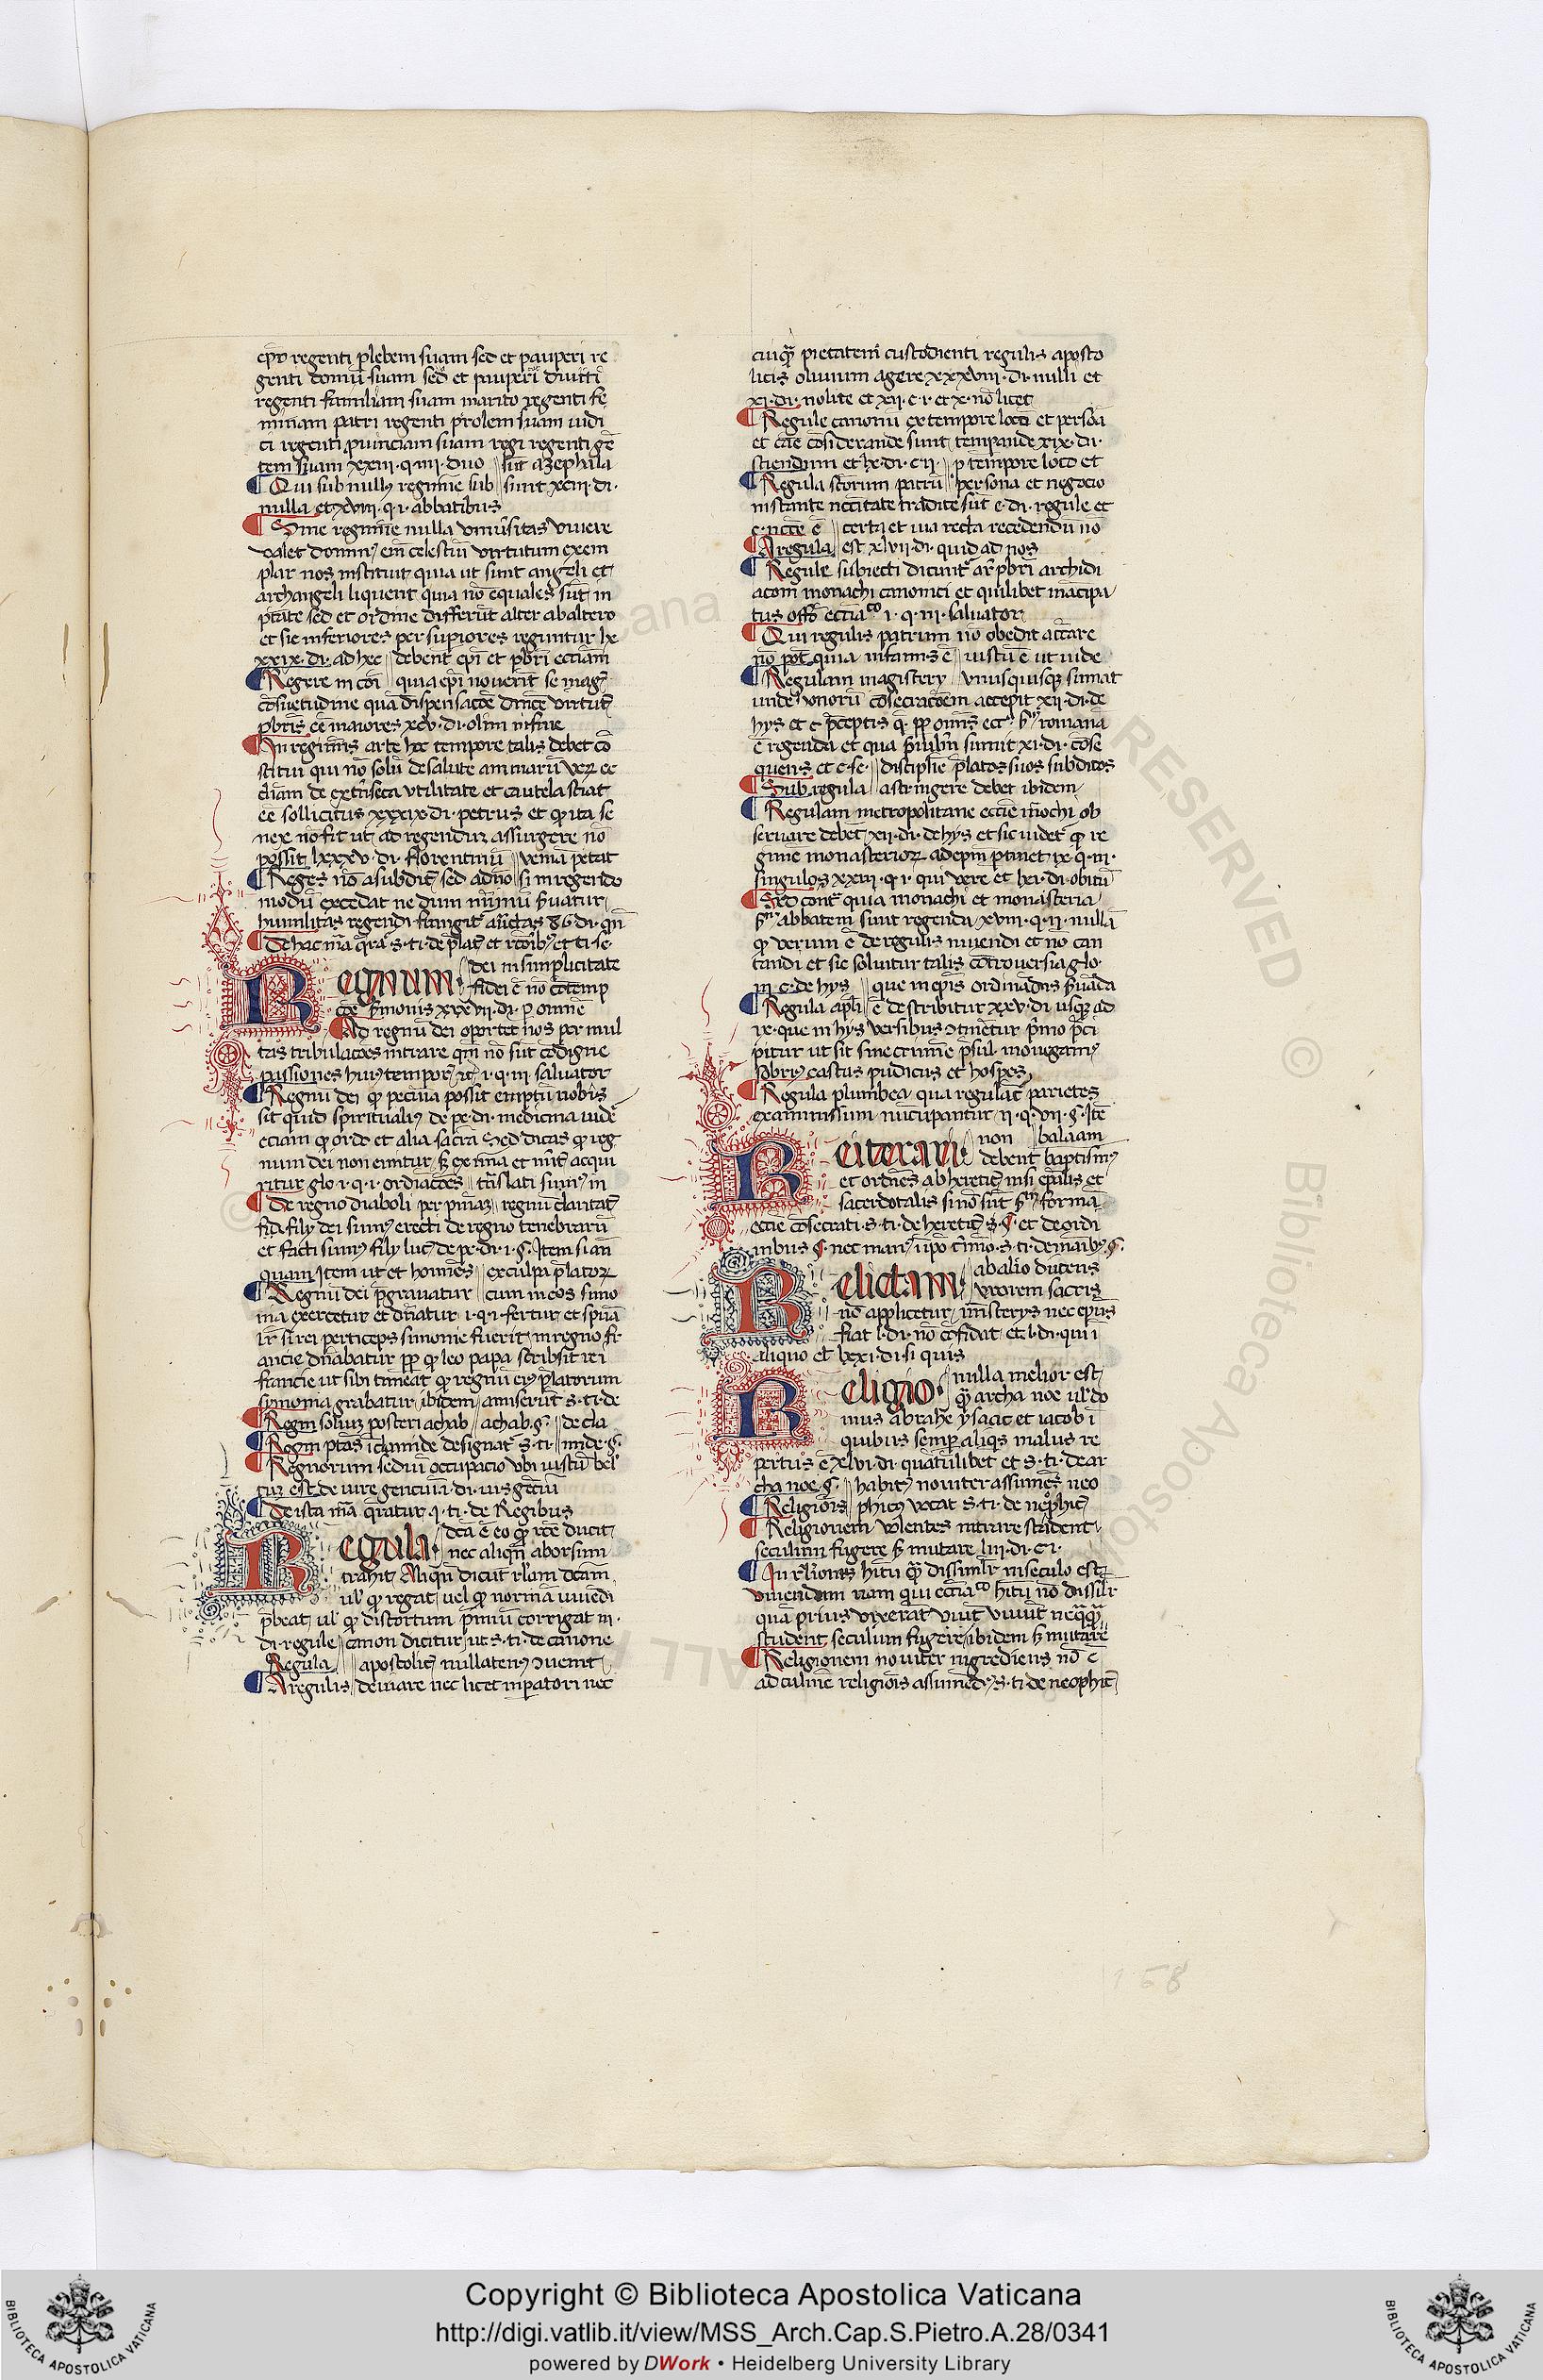 ep̄o regenti plebem suam sed et pauperi re
genti domū suam sed et pauperi diuiti
regenti familiam suam marito regenti fe
minam patri regenti prolem suam iudi
ci regenti puinciam suam regi regenti gē
tem suam xxiii·q·iiii·duo sūt azephala
Qui sub nullꝰ regimīe sub sunt xciii·di·
nulla et xviii·q·i·abbatibus
Sine regimīe nulla vniūsitas viuere
valet domnꝰ em̄ celestiū virtutum exem
plar nos instituit quia ut sunt angeli et
archangeli liquent quia nō equales sūt in
ptāte sed et ordine differūt alter ab altero
et sic inferiores per supiores reguntur lx
xxix·di·ad hec debent ep̄i et pb̄ri ecciam̄
Regere in cōi quia ep̄i nouerīt se mag
cōsuetudine quā dispensacōe dn̄ice virtut
pb̄ris eē maiores xcv·di·olim in fine
In regimīs arte hoc tempore talis debet cō
stitui qui nō solū de salute animarū veꝝ ec
ciam de extriseca vtilitate et cautela sciat
eē sollicitus xxxix·di·petrus et ꝙ ita se
nex nō sit ut ad regenduꝫ assurgere nō
possit lxxxv·di·florentinū veniā petat
Reges nō a subdit sed a dn̄o si in regendo
modū excedat ne dum nimiū s̄uatur
humilitas regendi frangit᷑ auctās 86·di·qn̄
De hac mā q̄ra s·ti·de plat et rcōibꝰ et ti·se·
Regnum dei in simplicitate
fidei ē nō cōtemp
cōe s̄monis xxxvii·di·ꝑ omnē
Ad regnū dei oportet nos per mul
tas tribulacōes intrare qm̄ nō sūt cōdigne
passiones huiꝰ tempor etc̄ i·q·iii·saluator
Regnū dei ꝙ pecūia possit emptū nobis
sit quid spiritualiꝰ de pe·di·medicina vide
eciam ꝙ ordo et alia sacra Sed dicas ꝙ reg
num dei non emitur s̄ ex
ritur glo i·q·i·ordiacōes trāslati sumꝰ in
De regno diaboli per regnū claritat
fida filij dei sumꝰ erecti de regno tenebrarū
et facti sumꝰ filij luc de pe·di·i·§·Item si an
quam Item ut et homīes ex culpa p̄latoꝝ
Regnū dei p̄grauatur cum in eos simo
nia exercetur et dn̄atur i·q·i·fertur et
si rei perticeps simonie fuerit in regno fr
ancie dn̄abatur pp̄ ꝙ leo papa scribsit rei
francie ut sibi timeat ꝙ regnū eiꝰ p̄latorum
symonia grabatur ibidem amiserūt s·ti·de
Regm̄ soluꝫ posteri achab achab·§· de cla
Regm̄ ptās i clamide designat᷑ s·ti· mide·§·
Regnorum sediū occupacio vbi iustū bel
luꝫ est de iure gentiū i·di·ius gētiū
De ista mā q̄ratur q·ti·de Regibus
Regula dcā ē eo ꝙ rcē ducit
nec aliqn̄ aborsum
trahit Aliqn̄ dicūt rl̄am dcam̄
ul̄ ꝙ regat vel ꝙ normā viuēdi
p̄beat ul̄ ꝙ distortum p̄miū corrigat iii·
di·regule canon dicitur ut s·ti·de canone
Regula apostolic nullatenꝰ ɔuenit
A regulis deuiare nec licet inpatori nec
cuiq̄ pietatem custodienti regulis aposto
licis oliuum agere xxxviii·di·nulli et
xi·di·nolite et xii·c·i·et x·nō licet
Regule canonū ex tempore locō et persōa
et cāe cōsiderande sunt tempande xix·di·
sciendum et lx·di·c·ii· ꝑ tempore loco et
Regula sctōrum patrū persona et negocio
instante necc̄itate tradite sūt e·di·regule et
c·necc̄e ē certa et uia recta recedendū nō
A regula est xlvii·di·quid ad nos
Regule subiecti dicunt᷑ arp̄b̄ri archidi
aconi monachi canonici et quilibet mācipa
tus offō eccīaco i·q·iii·saluator
Qui regulis patrum nō obedit acc̄are
nō pōt quia infamis ē iustū ē ut inde
Regulam magisterij vnusquisqꝫ sumat
unde honorū cōsecracōem accepit xii·di·de
hys et c·p̄ceptis q̄ pp omīs ecc sm̄ romanā
ē regenda et qua sumit xi·di·cōse
quens et c·se· disciplīe p̄latos suos subditos
Sub regula astringere debet ibidem
Regulam metropolitane eccīe mōchi ob
seruare debet xii·di·de hys et sic videt ꝙ re
gimē monasterioꝝ ad ep̄m ptinet ix·q·iii·
singulos xxiii·q·i·qui vere et hei·di·obitū
Sed contᷓ quia monachi et monasteria
sm̄ abbatem sunt regenda xviii·q·ii·nullā
ꝙ verum ē de regulis viuendi et nō can
tandi et sic soluitur talis cōtrouersia glo·
in·c·de hys que in ep̄is ordinādis s̄uāda
Regula apl̄i ē describitur xxv·di·usqꝫ ad
ix·que in hys versibus ɔtinētur p̄mo p̄ci
pitur ut sit sine crimīe p̄sul monogamꝰ
sobriꝰ castus pudicus et hospes
Regula plumbea qua regulāt parietes
examinussim nūcupantur ii·q·vii·§·Itē
Reiterari non balaam
debent baptismꝰ
et ordīes ab heretic nisi ep̄alis et
sacerdotalis si nō sūt sm̄ formā
eccīe cōsecrati·s·ti·de heretic·§·§·et de ordi
nibus §·nec manꝰ īpō t̄imō·s·ti·de māibꝰ §·
Relictam ab alio ducens
vxorem sacris
nō applicetur minsterys nec ep̄us
fiat l·di·nō cōfidat et l·di·qui i
aliquo et lxxi·di·si quis
Religio nulla melior est
q̄ archa noe ul̄ do
mus abrahe ysaac et iacob i
quibus semper aliqs malus re
pertus ē xlvi·di·quātūlibet et s·ti·de ar
cha noe·§· habitꝰ nouiter assumēs neo
Religiōis phitꝰ vocat s·ti·de neophit
Religionem volentes intrare student
seculum fugere s̄ mutare liii·di·c·i·
In rl̄ionis hitū q̄ dissimilr̄ in seculo est
viuendum nam qui eccīaco hitū nō dissilr̄
quā prius vixerat viuit neqq̄
student seculum fugere ibidem s̄ mutare
Religionem nouiter ingrediens nō ē
ad culmē religiōis assumēdꝰ s·ti·de neophit
158
Copyright © Biblioteca Apostolica Vaticana
http://digi.vatlib.it/view/MSS_Arch.Cap.S.Pietro.A.28/0341
powered by DWork • Heidelberg University Library
BIBLIOTECA APOSTOLICA VATICANA
BIBLIOTECA APOSTOLICA VATICANA